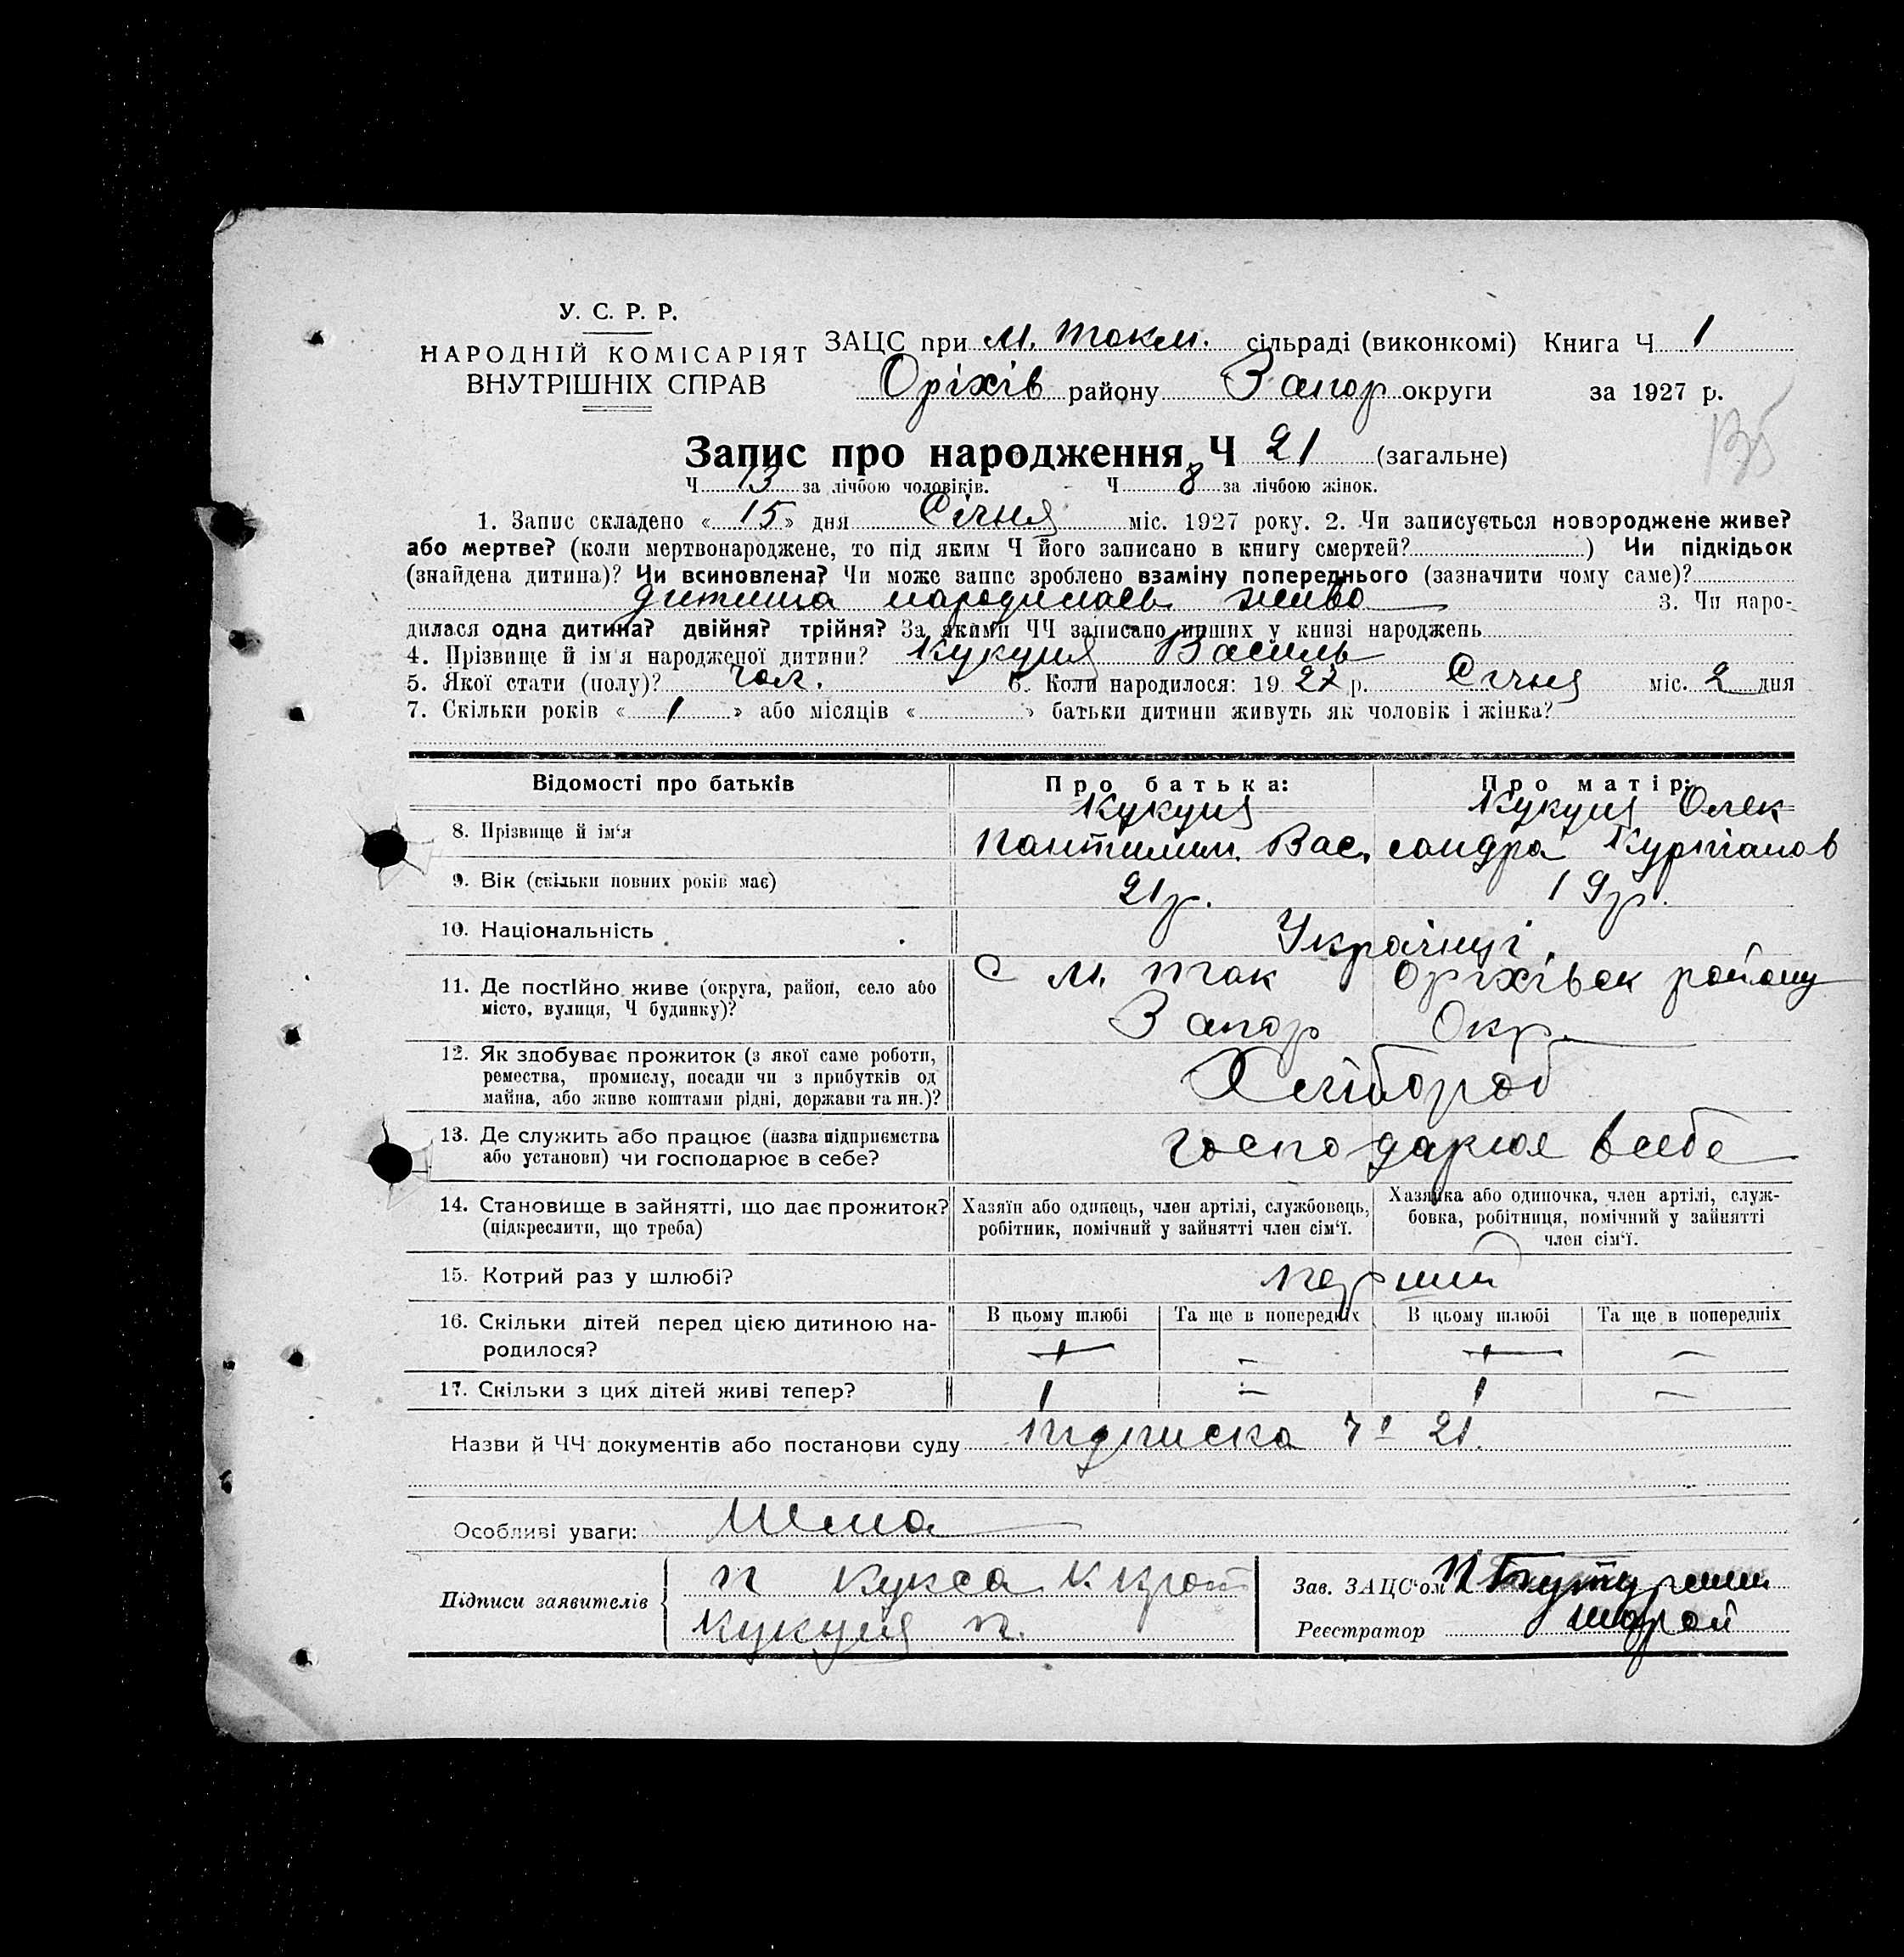 У. С. Р. Р.
НАРОДНІЙ КОМІСАРІЯТ
ВНУТРІШНІХ СПРАВ
ЗАЦС при м. Токм. сільраді (виконкомі) Книга Ч 1
Оріхів району Запор округи за 1927 р.
Запис про народження Ч 21 (загальне)
Ч 13 за лічбою чоловіків. Ч 8 за лічбою жінок.
1. Запис складено « 15 » дня Січня міс. 1927 року. 2. Чи записується новороджене живе?
або мертве? (коли мертвонароджене, то під яким Ч його записано в книгу смертей? ) Чи підкідьок
(знайдена дитина)? Чи всиновлена? Чи може запис зроблено взаміну попереднього (зазначити чому саме)?
дитина народилась живо 3. Чи наро-
дилася одна дитина? двійня? трійня? За якими ЧЧ записано инших у книзі народжень
4. Прізвище й ім'я народженої дитини? Кукуня Василь
5. Якої стати (полу)? чол. 6. Коли народилося: 19 27 р. Січня міс. 2 дня
7. Скільки років « 1 » або місяців « » батьки дитини живуть як чоловік і жінка?
Відомості про батьків Про батька: Про матір:
8. Прізвище й ім'я Кукуня Кукуня Олек
Пантилим. Вас. сандра
9. Вік (скільки повних років має) 21р. 19р.
10. Національність Українці
11. Де постійно живе (округа, район, село або
місто, вулиця, Ч будинку)?
С м. Ток Оріхівск району
Запор Окр.
12. Як здобуває прожиток (з якої саме роботи,
ремества, промислу, посади чи з прибутків од
майна, або живе коштами рідні, держави та ин.)?
Хлібороб
13. Де служить або працює (назва підприємства
або установи) чи господарює в себе?
господарює в себе
14. Становище в зайнятті, що дає прожиток?
(підкреслити, що треба)
Хазяїн або одинець, член артілі, службовець,
робітник, помічний у зайнятті член сім'ї.
Хазяйка або одиночка, член артілі, служ-
бовка, робітниця, помічний у зайнятті
член сім'ї.
15. Котрий раз у шлюбі? перший
16. Скільки дітей перед цією дитиною на-
родилося?
В цьому шлюбі Та ще в попередніх В цьому шлюбі Та ще в попередніх
– –
17. Скільки з цих дітей живі тепер? 1 – 1 –
Назви й ЧЧ документів або постанови суду Підписка Ч 21.
Особливі уваги: Нема
Підписи заявителів
п Кукса К
Кукуня П.
Зав. ЗАЦС'ом
Реєстратор